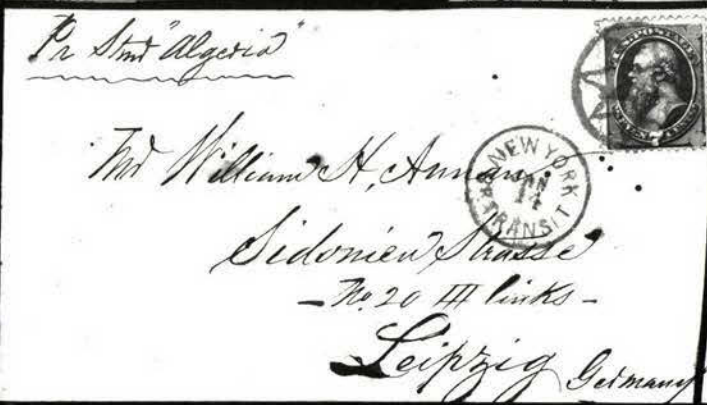 Pr Stmr "Algeria"
NEW YORK
JAN
14
TRANSIT
Mr William H, Annan
Sidonien Strasse
- No. 20 III links -
Leipzig Germany